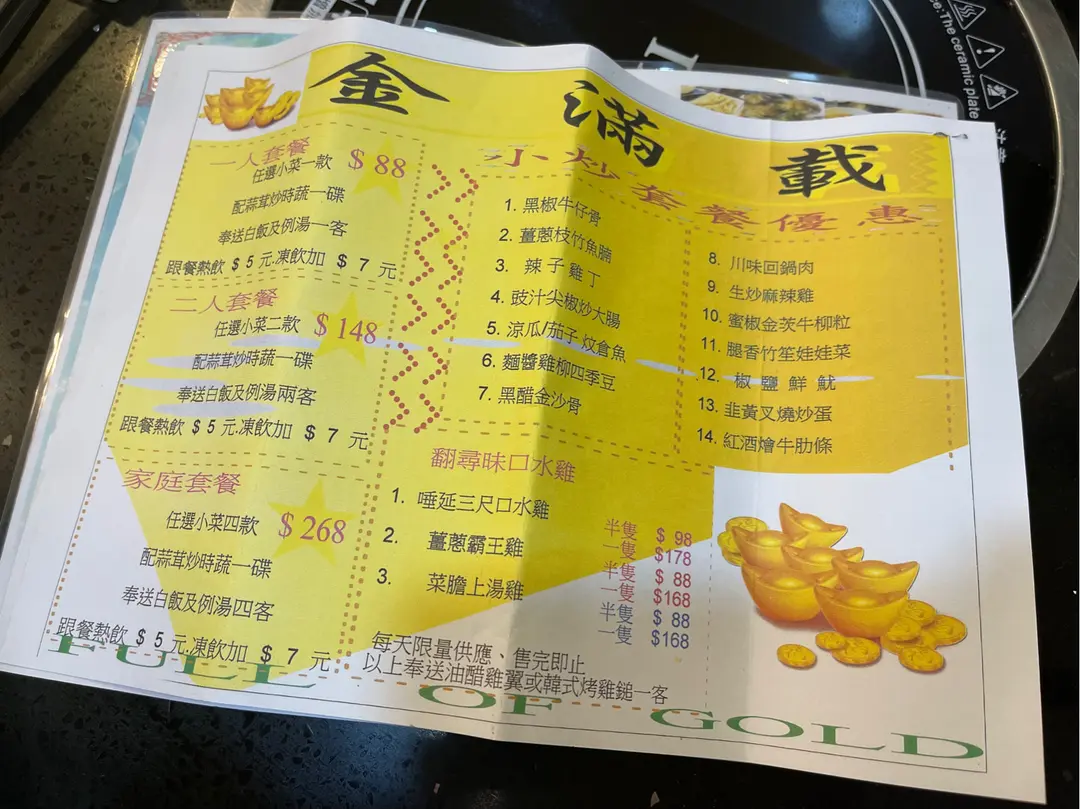 金滿載
一人套餐
任選小菜一款 $88
配蒜茸炒時蔬一碟
奉送白飯及例湯一客
跟餐熱飲 $5元.凍飲加 $7元
二人套餐
任選小菜二款 $148
配蒜茸炒時蔬一碟
奉送白飯及例湯兩客
跟餐熱飲 $5元.凍飲加 $7元
家庭套餐
任選小菜四款 $268
配蒜茸炒時蔬一碟
奉送白飯及例湯四客
跟餐熱飲 $5元.凍飲加 $7元
小炒套餐優惠
1. 黑椒牛仔骨
2. 薑蔥枝竹魚腩
3. 辣子雞丁
4. 豉汁尖椒炒大腸
5. 涼瓜/茄子炆倉魚
6. 麵醬雞柳四季豆
7. 黑醋金沙骨
8. 川味回鍋肉
9. 生炒麻辣雞
10. 蜜椒金茨牛柳粒
11. 腿香竹笙娃娃菜
12. 椒鹽鮮魷
13. 韭黃叉燒炒蛋
14. 紅酒燴牛肋條
翻尋味口水雞
1. 唾延三尺口水雞
半隻 $98
一隻 $178
2. 薑蔥霸王雞
半隻 $88
一隻 $168
3. 菜膽上湯雞
半隻 $88
一隻 $168
每天限量供應、售完即止
以上奉送油醋雞翼或韓式烤雞鎚一客
FULL OF GOLD
:The ceramic plate